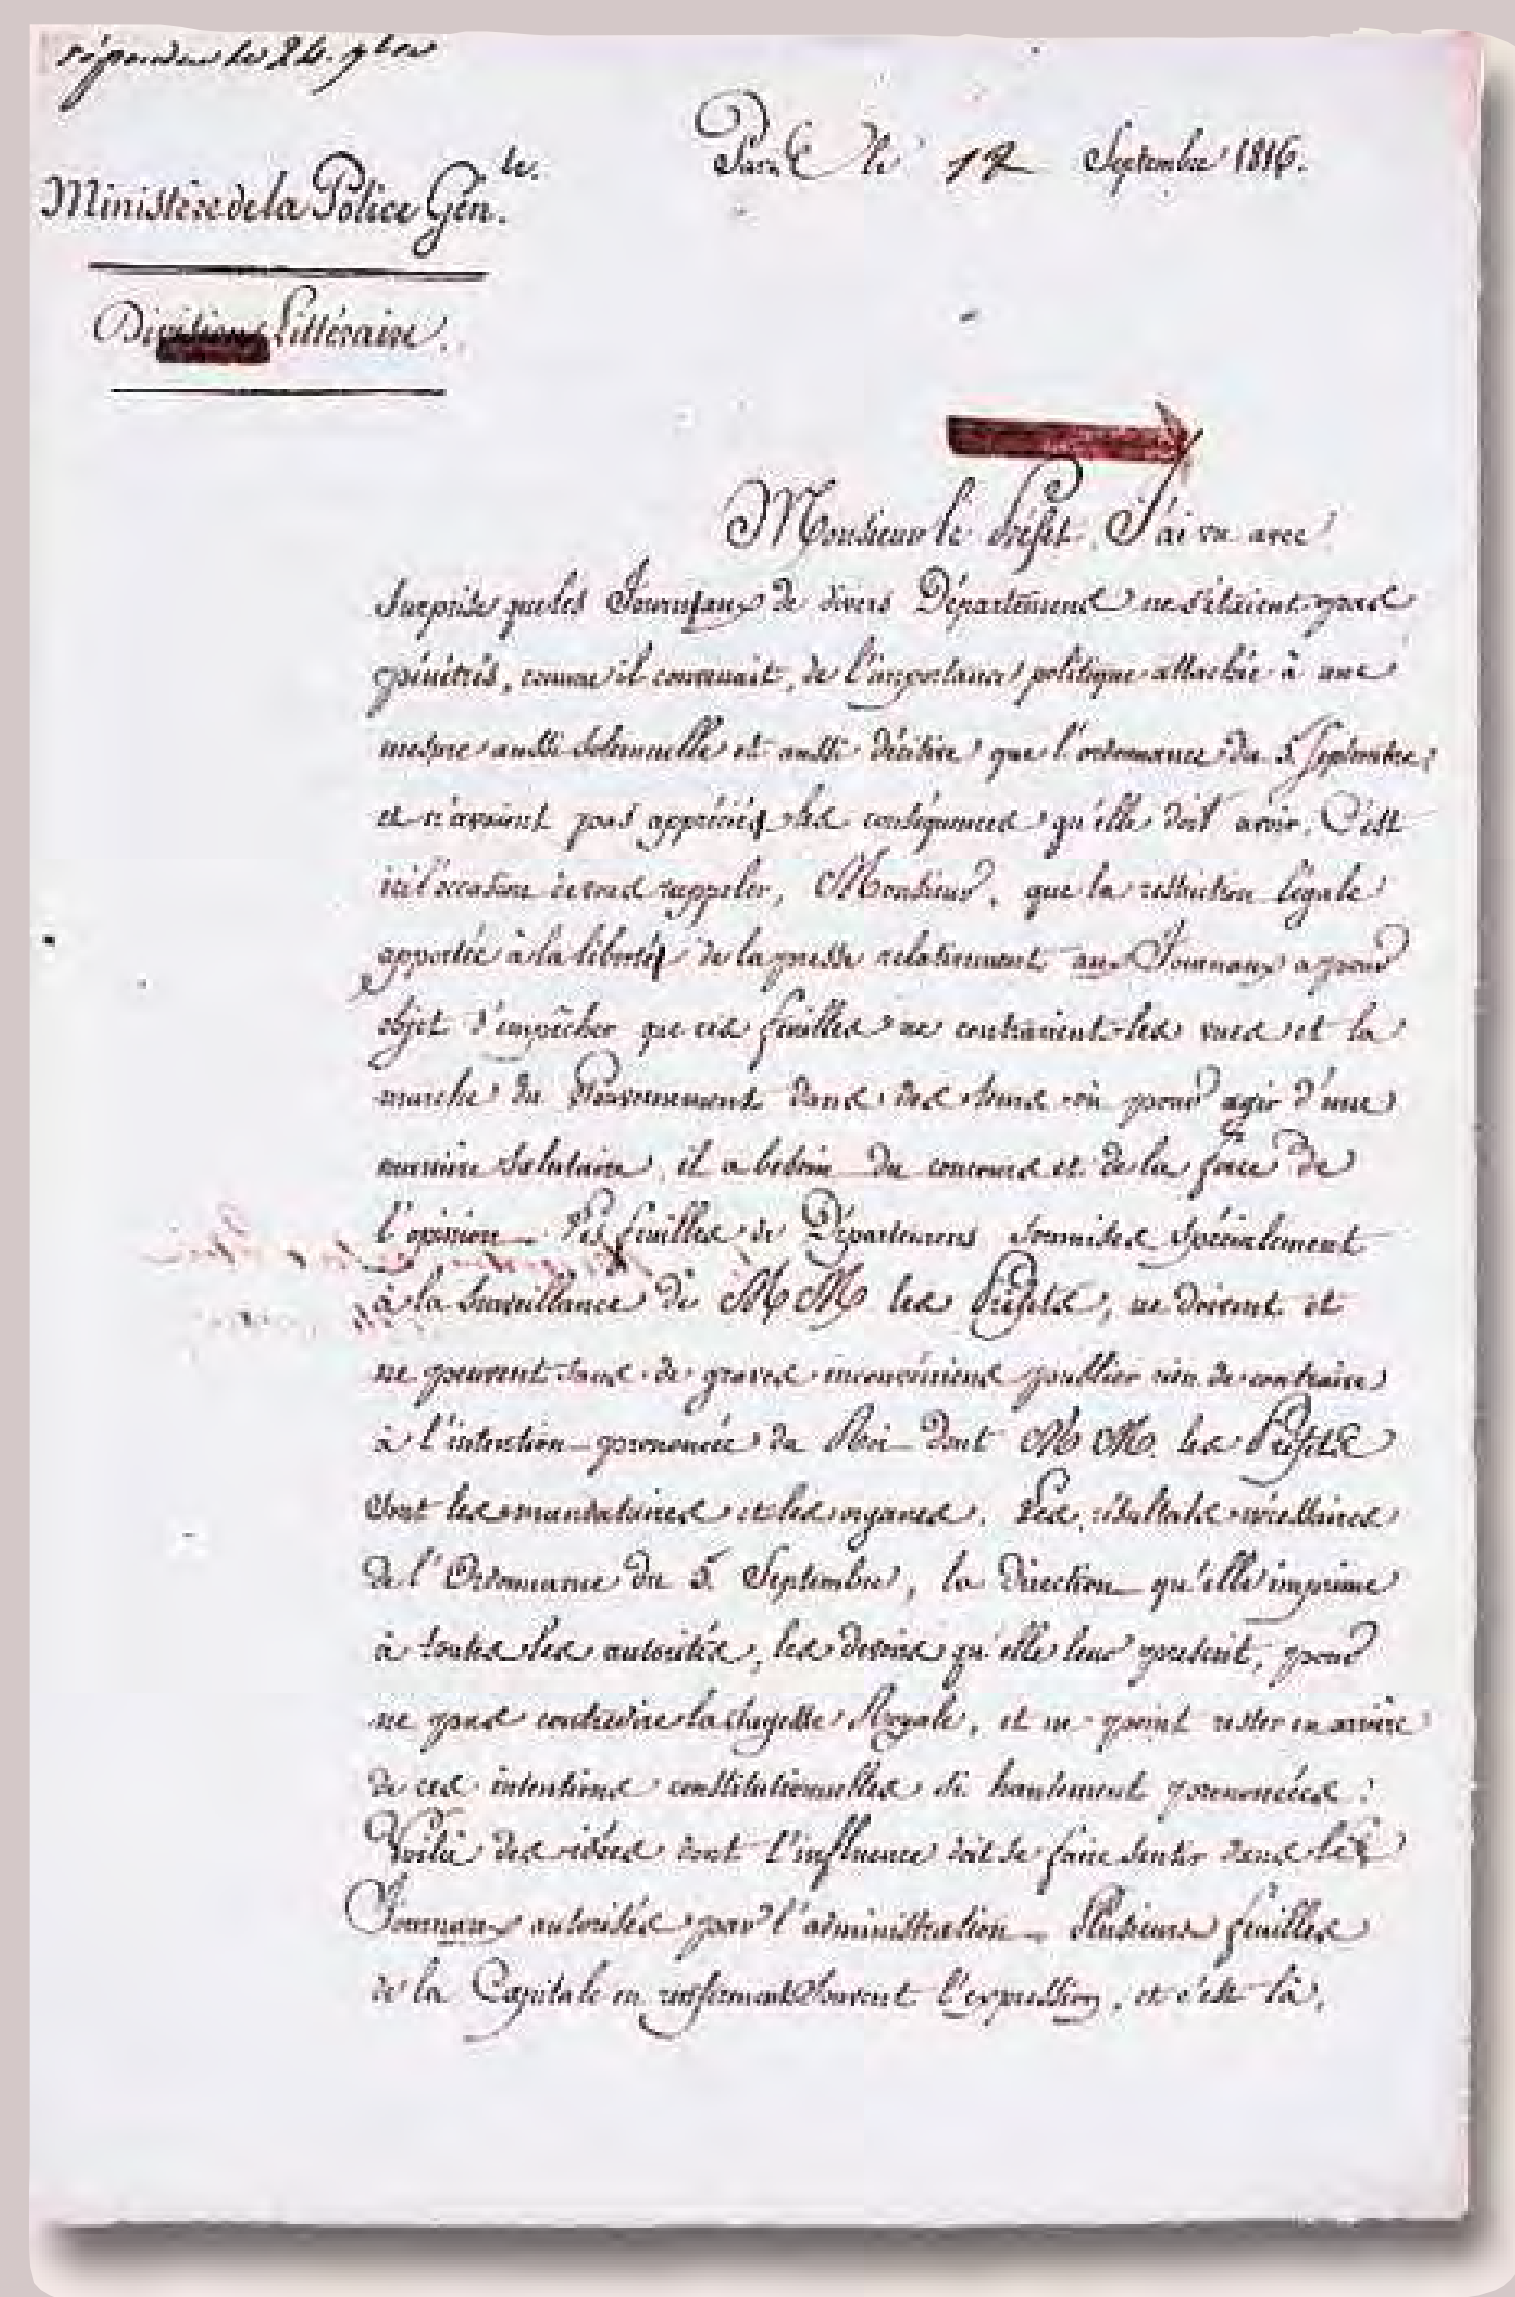 répondu le 24. 9bre
Ministère de la Police Gén.le.
Paris le 12 Septembre 1816.
Division Littéraire.
Monsieur le Préfet, J'ai vu avec
surprise que les Journaux de divers Départemens ne s'étaient pas
pénétrés, comme il convenait, de l'importance politique attachée à une
mesure aussi solennelle et aussi décisive que l'ordonnance du 5 Septembre,
et n'avaient pas apprécié les conséquences qu'elle doit avoir. C'est
ici l'occasion de vous rappeler, Monsieur, que la restriction légale
apportée à la liberté de la presse relativement aux Journaux a pour
objet d'empêcher que ces feuilles ne contrarient les vues et la
marche du Gouvernement dans des tems où pour agir d'une
manière salutaire, il a besoin du concours et de la force de
l'opinion. Les feuilles de Départemens soumises spécialement
à la surveillance de MM les Préfets, ne doivent et
ne peuvent sans de graves inconvéniens publier rien de contraire
à l'intention prononcée du Roi dont MM. les Préfets
sont les mandataires et les organes. Les résultats nécessaires
de l'Ordonnance du 5 Septembre, la direction qu'elle imprime
à toutes les autorités, les devoirs qu'elle leur prescrit, pour
ne pas contredire la sagesse Royale, et ne point rester en arrière
de ces intentions constitutionnelles si hautement prononcées :
Voilà des idées dont l'influence doit se faire sentir dans les
Journaux autorisés par l'administration. Plusieurs feuilles
de la Capitale en renferment souvent l'expression, et c'est là,